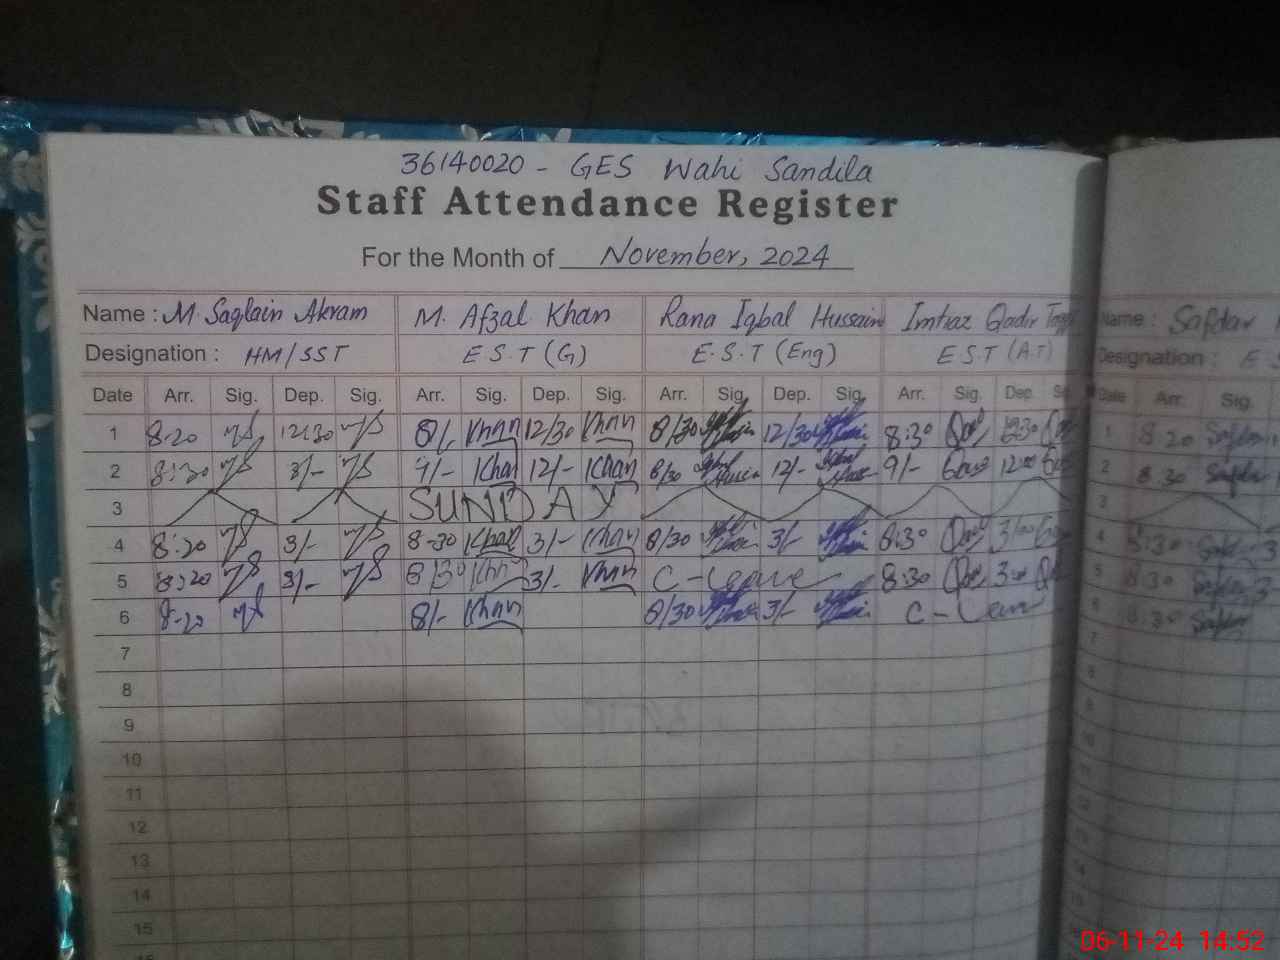 36140020 - GES Wahi Sandila
Staff Attendance Register
For the Month of November, 2024
Name : M. Saqlain Akram M. Afzal Khan Rana Iqbal Hussain Imtiaz Qadir Name : Safdar
Designation : HM/SST E.S.T (G) E.S.T (Eng) E.S.T (A.T) Designation : E
Date Arr. Sig. Dep. Sig. Arr. Sig. Dep. Sig. Arr. Sig. Dep. Sig. Arr. Sig. Dep. Date Arr. Sig.
1 8:20 12:30 8/- Khan 12/30 Khan 8/30 12/30 8:30 1 8 20 Safdar
2 8:30 3/- 9/- Khan 12/- Khan 8/30 12/- 9/- 12:00 2 8.30 Safdar
3 SUNDAY 3
4 8:20 3/- 8-30 Khan 3/- Khan 8/30 3/- 8:30 3/00 4 8:30 Safdar 3
5 8:20 3/- 8/30 Khan 3/- Khan C-Leave 8:30 3:00 5 8:30 Safdar 3
6 8-20 8/- Khan 8/30 3/- C-Leave 6 8:30 Safdar
7 7
8 8
9 9
10 10
11 11
12 12
13 13
14 14
15 15
06-11-24 14:52